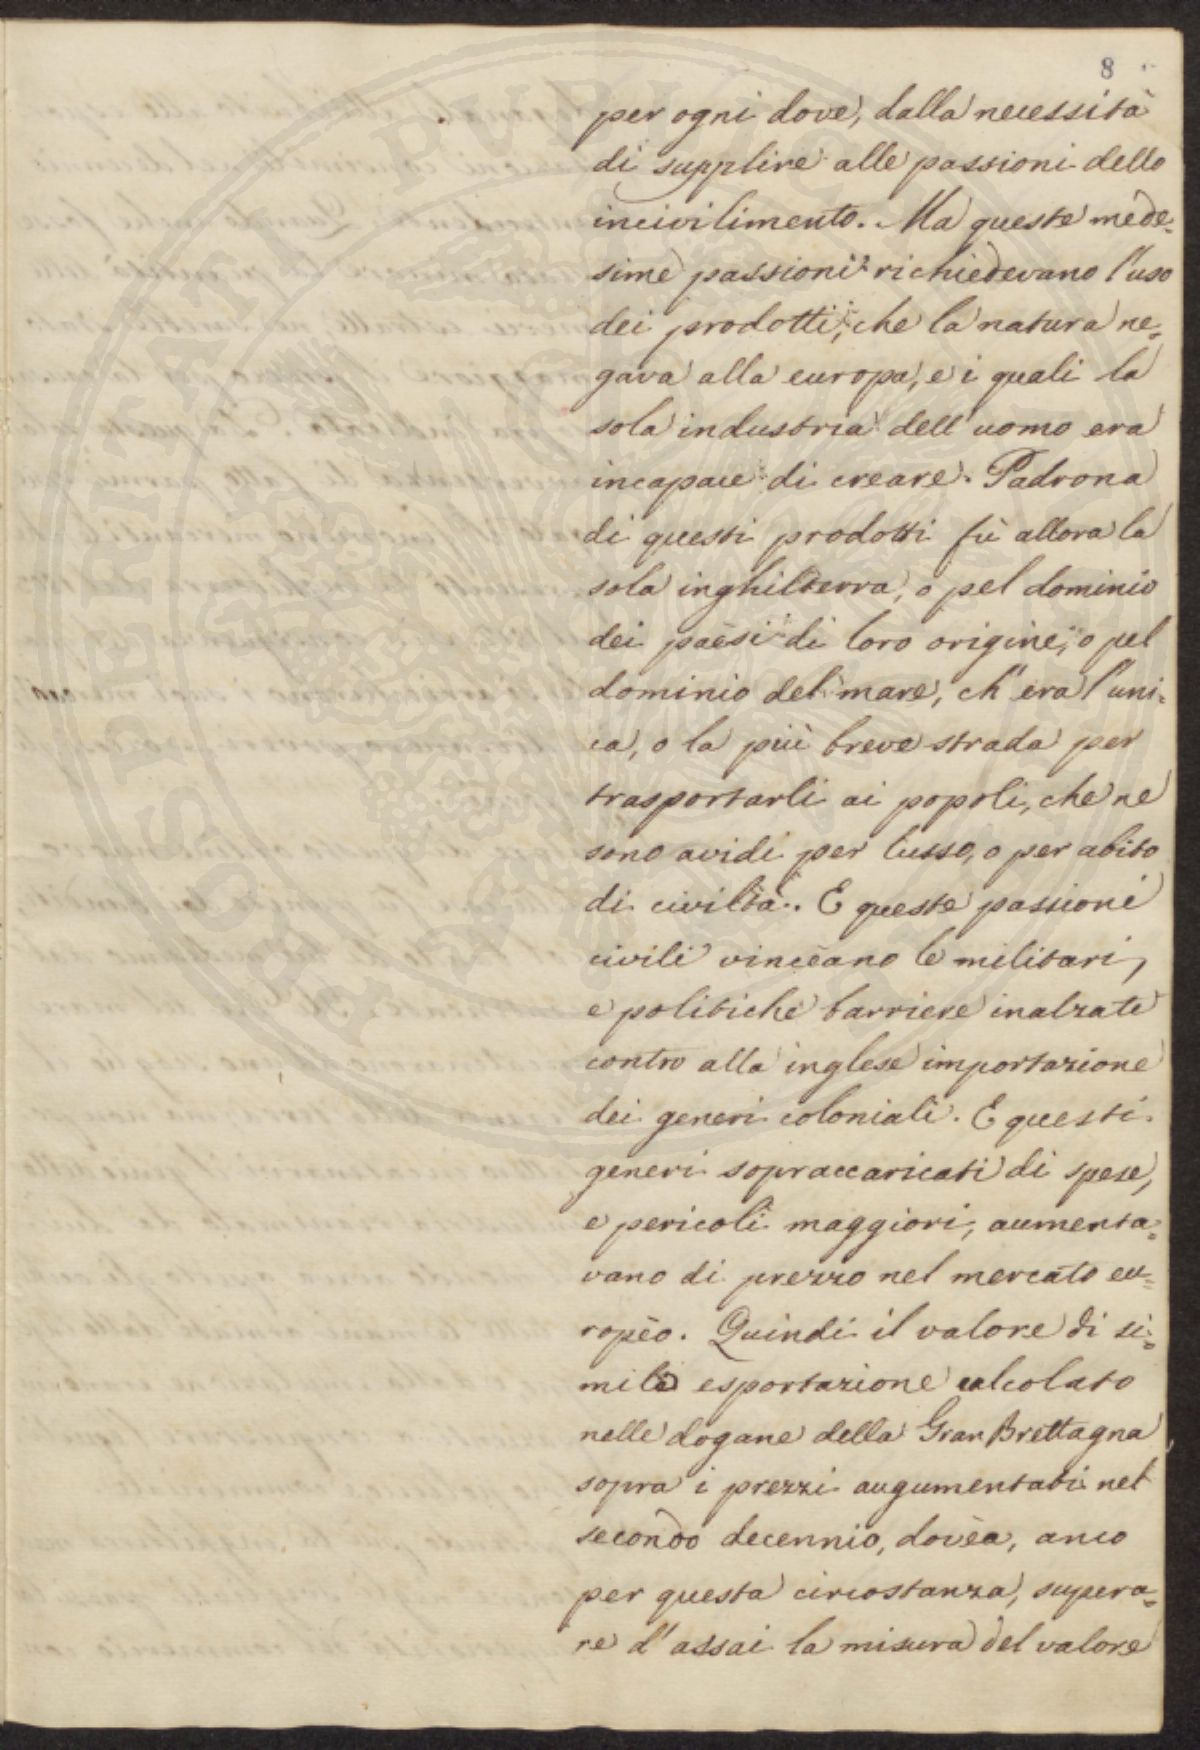 8
per ogni dove, dalla necessità
di supplire alle passioni dello
incivilimento. Ma queste mede=
sime passioni richiedevano l'uso
dei prodotti, che la natura ne=
gava alla europa, e i quali la
sola industria dell'uomo era
incapace di creare. Padrona
di questi prodotti fù allora la
sola inghilterra, o pel dominio
dei paèsi di loro origine, o pel
dominio del mare, ch'era l'uni=
ca, o la più breve strada per
trasportarli ai popoli, che ne
sono avidi per lusso, o per abito
di civiltà. E queste passioni
civili vincèano le militari,
e politiche barriere inalzate
contro alla inglese importazione
dei generi coloniali. E questi
generi sopraccaricati di spese,
e pericoli maggiori, aumenta=
vano di prezzo nel mercato eu=
ropèo. Quindi il valore di si=
mile esportazione calcolato
nelle dogane della Gran Brettagna
sopra i prezzi augumentati nel
secondo decennio, dovèa, anco
per questa circostanza, supera=
re d'assai la misura del valore